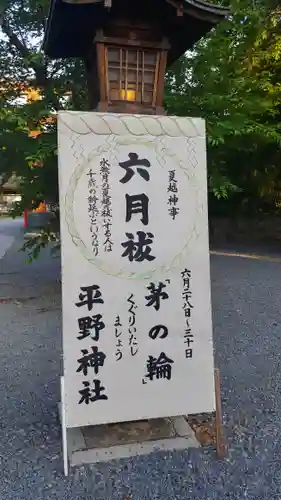 夏越神事
六月祓
水無月の夏越の祓する
人は
千歳の命のぶというなり
六月二十八日～三十日
「茅の輪」
くぐりいたし
ましょう
平野神社